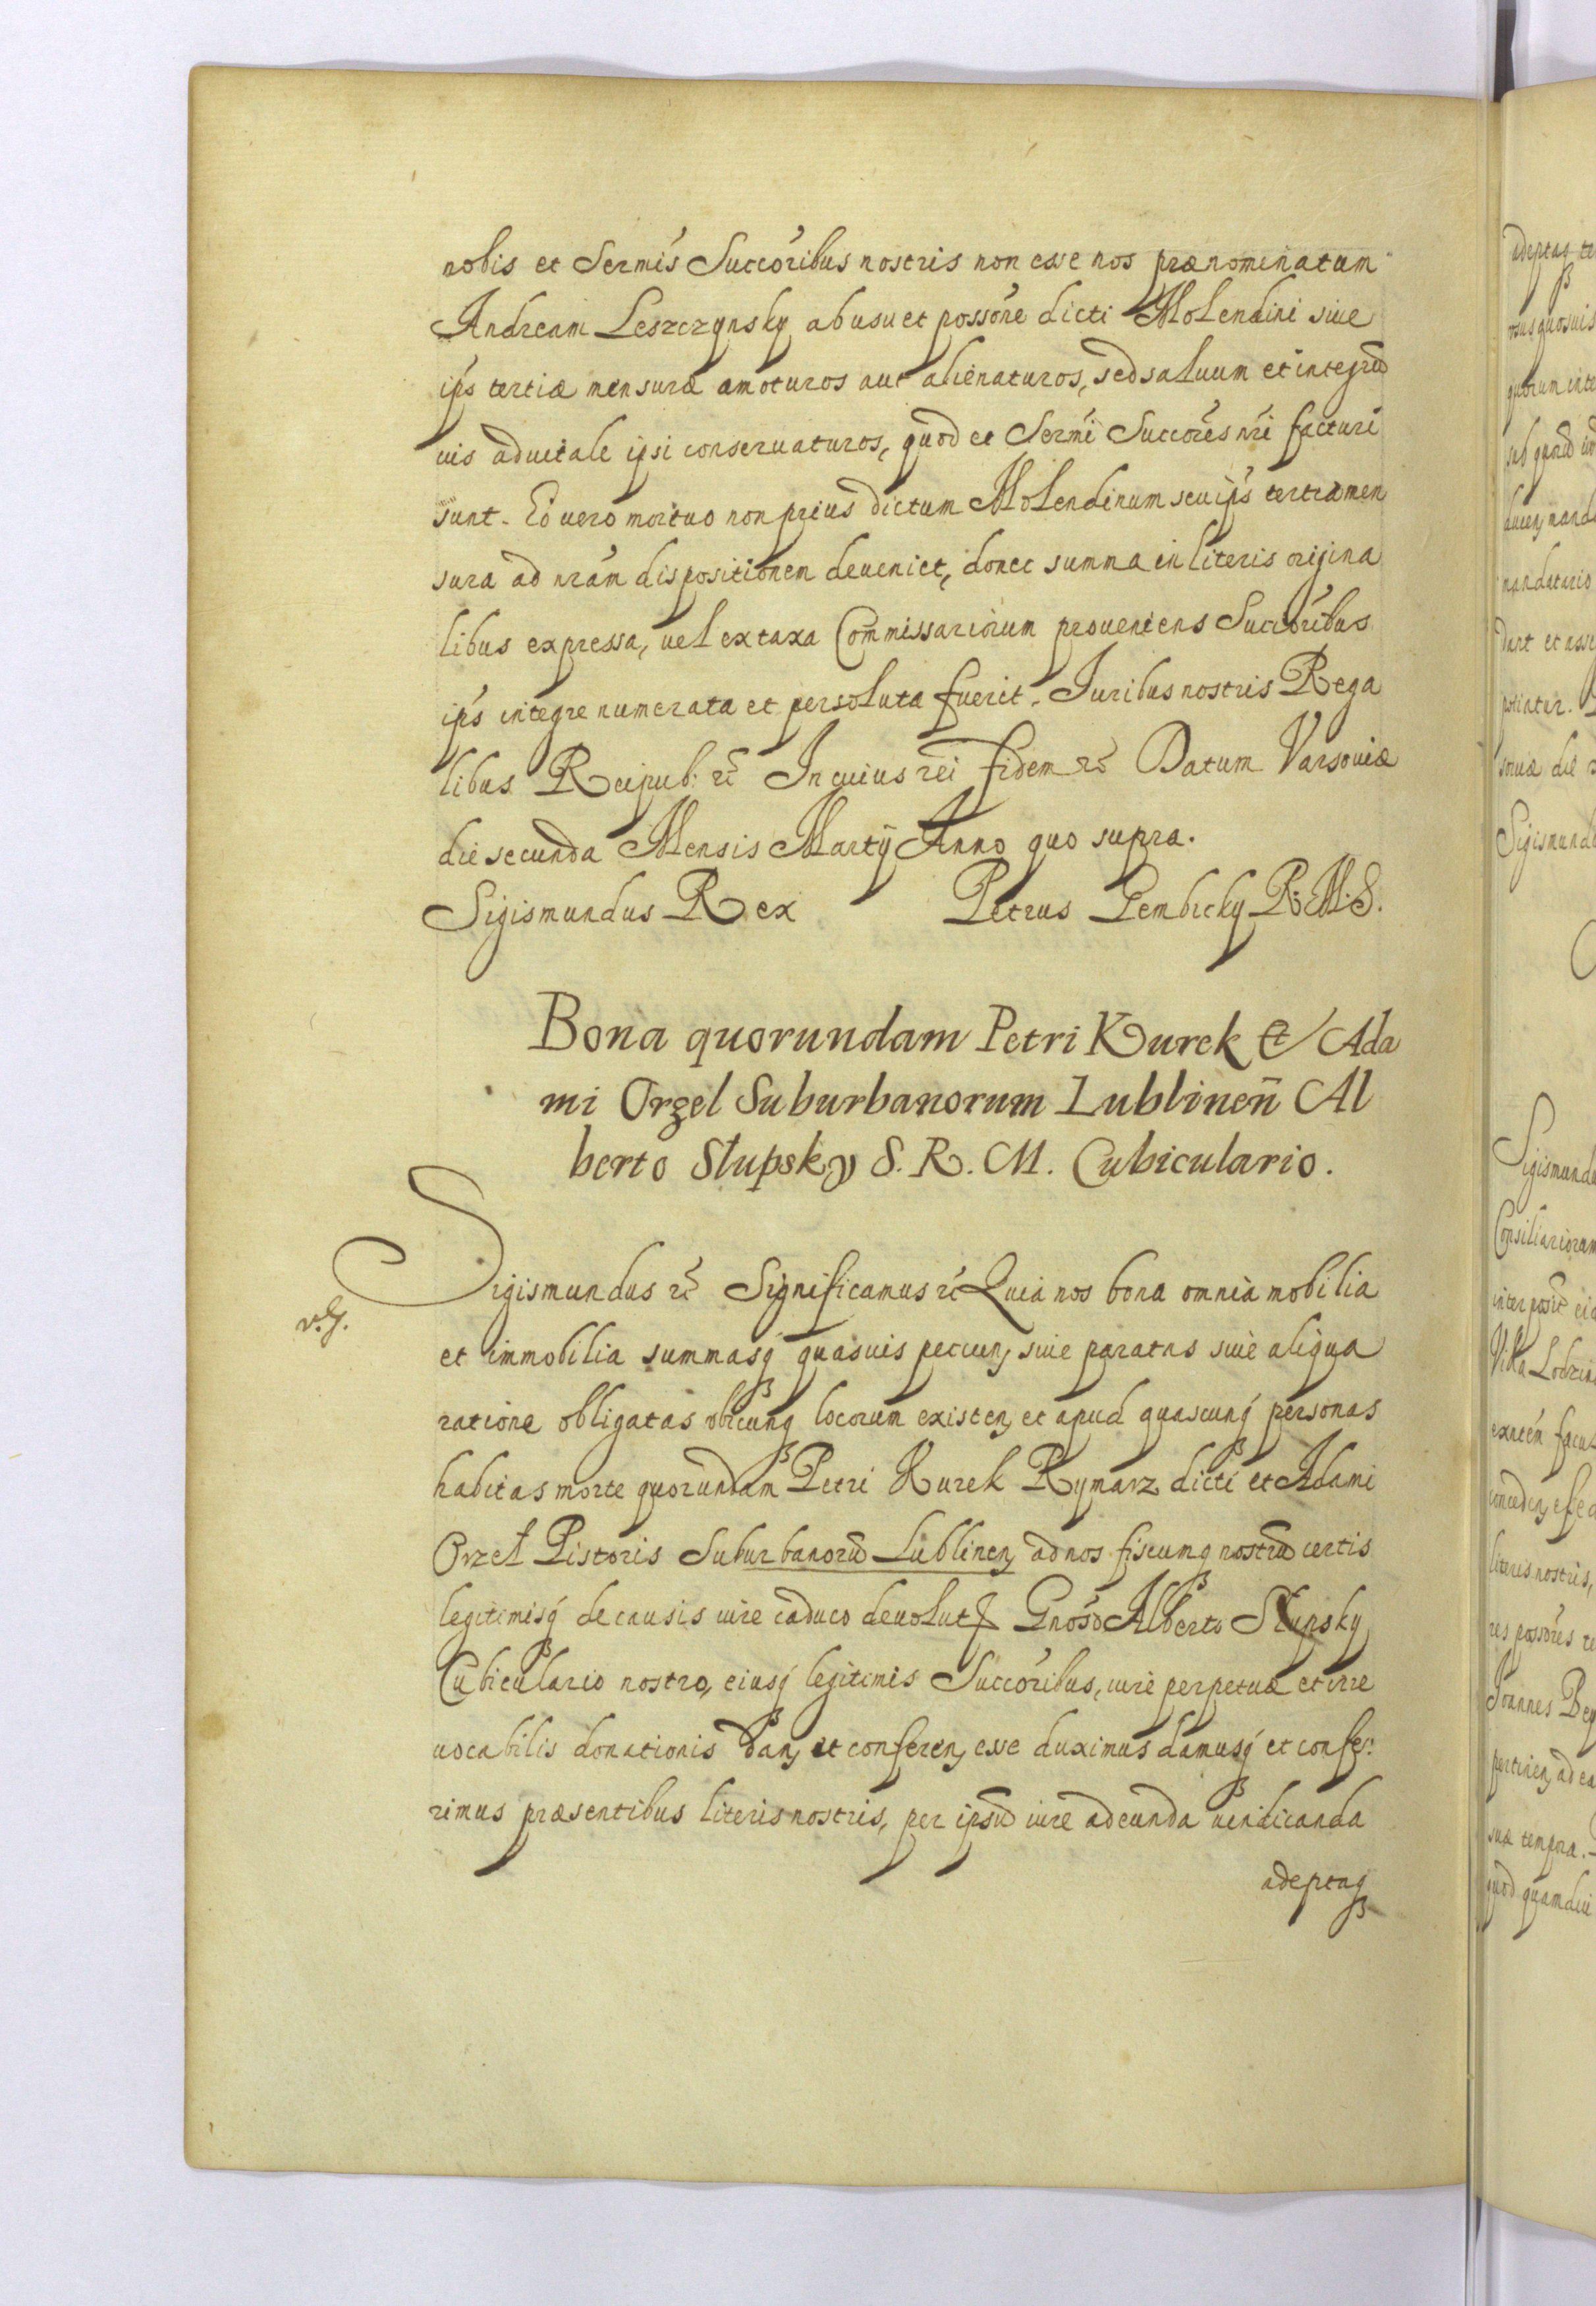 nobis et Sermis Succoribus nostris non esse nos prænominatum
Andream Leszczynsky ab usu et possone dicti Molendini siue
ips tertiæ mensuræ amoturos aut alienaturos, sed saluum et integrũ
uis aduitale ipsi conseruaturos, quod et Sermi Succores nri facturi
sunt. Eo uero mortuo non prius dictum Molendinum seu ips tertia men
sura ad nram dispositionem deueniet, donec summa in literis origina
libus expressa, uel ex taxa Commissariorum proueniens Succoribus
ips integre numerata et persoluta fuerit. Iuribus nostris Rega
libus Reipub: rc In cuius rei fidem rc Datum Varsouiæ
die secunda Mensis Martij Anno quo supra.
Sigismundus Rex Petrus Gembicky R: M: S.
Bona quorundam Petri Kurek et Ada
mi Orzel Suburbanorum Lublineñ Al
berto Słupsky S. R. M. Cubiculario.
Sigismundus rc Significamus rc Quia nos bona omnia mobilia
v. g.
et immobilia summasq quasuis pecun, siue paratas siue aliqua
ratione obligatas vbicunq locorum existen, et apud quascunq personas
habitas morte quorundam Petri Kurek Rymarz dicti et Adami
Orzeł Pistoris Suburbanorũ Lublinen, ad nos fiscumq nostrũ certis
legitimisq de causis iure caduco deuoluta Gnoso Alberto Słupsky
Cubiculario nostro, eiusq legitimis Succoribus, iure perpetuæ et irre
uocabilis donationis dan, et conferen, esse duximus damusq et confe:
rimus præsentibus literis nostris, per ipsũ iure adeunda uendicanda
adeptaq
adeptaq
quosuis
quorum
mandatario
dant et
potiatur.
die
Sigismund
Sigismundu
Consiliariorum
Villa
literis nostris,
Joannes
ad ea
suæ tempora.
quod quamdiu